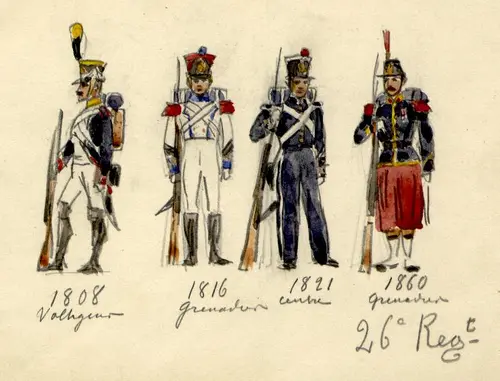 1808
Voltigeur
1816
Grenadier
1821
Centre
1860
Grenadier
26e Regt